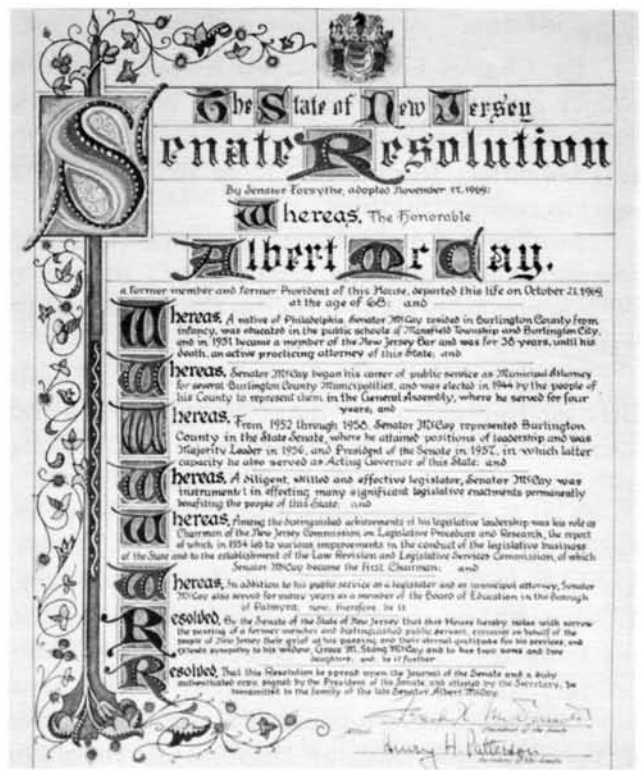 The State of New Jersey
Senate Resolution
By Senator Forsythe, adopted November 17, 1969:
Whereas, The Honorable
Albert McCay,
a former member and former President of this House, departed this life on October 21, 1969,
at the age of 68; and
Whereas, A native of Philadelphia Senator McCay resided in Burlington County from
infancy, was educated in the public schools of Mansfield Township and Burlington City,
and in 1931 became a member of the New Jersey Bar and was for 38 years, until his
death, an active practicing attorney of this State; and
Whereas, Senator McCay began his career of public service as Municipal Attorney
for several Burlington County Municipalities, and was elected in 1944 by the people of
his County to represent them in the General Assembly, where he served for four
years; and
Whereas, From 1952 through 1958, Senator McCay represented Burlington
County in the State Senate, where he attained positions of leadership and was
Majority Leader in 1956, and President of the Senate in 1957, in which latter
capacity he also served as Acting Governor of this State; and
Whereas, A diligent, skilled and effective legislator, Senator McCay was
instrumental in effecting many significant legislative enactments permanently
benefiting the people of this State; and
Whereas, Among the distinguished achievements of his legislative leadership was his role as
Chairman of the New Jersey Commission on Legislative Procedure and Research, the report
of which in 1954 led to various improvements in the conduct of the legislative business
of the State and to the establishment of the Law Revision and Legislative Services Commission, of which
Senator McCay became the first Chairman; and
Whereas, In addition to his public service as a legislator and as municipal attorney, Senator
McCay also served for many years as a member of the Board of Education in the Borough
of Palmyra; now, therefore be it
Resolved, By the Senate of the State of New Jersey that this House hereby notes with sorrow
the passing of a former member and distinguished public servant, expresses on behalf of the
people of New Jersey their grief at his passing and their eternal gratitude for his services, and
extends sympathy to his widow, Grace M. McCay and to his two sons and two
daughters; and be it further
Resolved, That this Resolution be spread upon the Journal of the Senate and a duly
authenticated copy, signed by the President of the Senate and attested by the Secretary, be
transmitted to the family of the late Senator Albert McCay.
Frank X. McDermott
President of the Senate
Henry H. Patterson
Secretary of the Senate